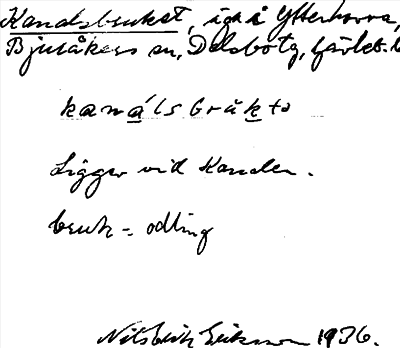 Kanalsbruket, äga i Ytterhavra,
Bjuråkers sn, Delsbo tg, Gävleb. l
kanálsbråkto
Ligger vid Kanalen.
bruk = odling
Nils Erik Eriksson 1936.